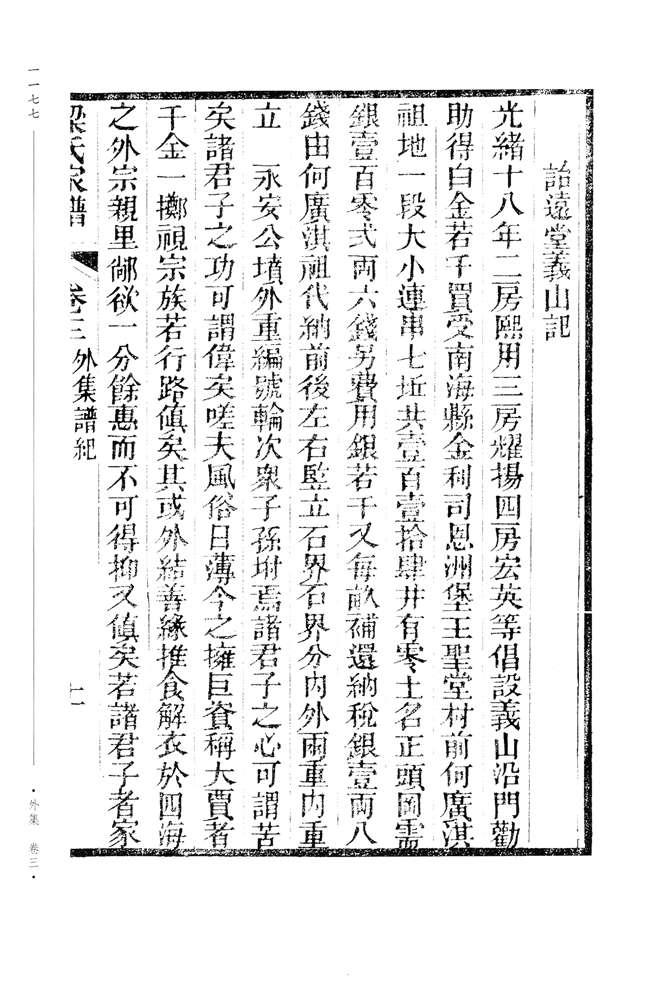 詒遠堂義山記
光緒十八年二房熙用三房耀揚四房宏英等倡設義山沿門勸
助得白金若干買受南海縣金利司恩洲堡王聖堂村前何廣淇
祖地一段大小連串七坵共壹百壹拾肆井有零土名正頭岡需
銀壹百零弍兩六錢另費用銀若干又每畝補還納稅銀壹兩八
錢由何廣淇祖代納前後左右監立石界石界分內外兩重內重
立 永安公墳外重編號輪次衆子孫坿焉諸君子之心可謂苦
矣諸君子之功可謂偉矣嗟夫風俗日薄今之擁巨資稱大賈者
千金一擲視宗族若行路傎矣其或外結善緣推食解衣於四海
之外宗親里鄰欲一分餘惠而不可得抑又傎矣若諸君子者家
梁氏家譜 卷三 外集譜紀 十一
一一七七
·外集 卷三·